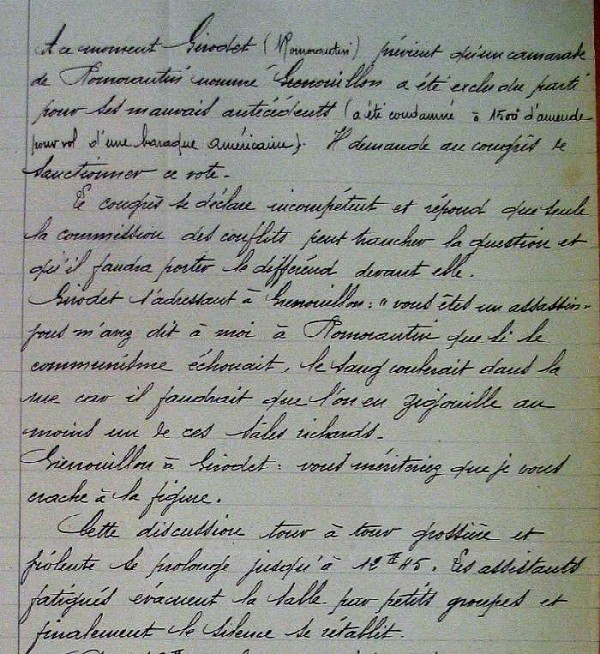 A ce moment Girodet (Romorantin) prévient qu'un camarade
de Romorantin nommé Grenouillon a été exclu du parti
pour ses mauvais antécédents (a été condamné à 1500 d'amende
pour vol d'une baraque américaine). Il demande au congrès de
sanctionner ce vote.
Le congrès se déclare incompétent et répond que seule
la commission des conflits peut trancher la question et
qu'il faudra porter le différend devant elle.
Girodet s'adressant à Grenouillon : "vous êtes un assassin -
vous m'avez dit à moi à Romorantin que si le
communisme échouait, le sang coulerait dans la
rue car il faudrait que l'on en zigouille au
moins un de ces sales richards -
Grenouillon à Girodet : vous mériteriez que je vous
crache à la figure.
Cette discussion tour à tour grossière et
violente se prolonge jusqu'à 12 H 45. Les assistants
fatigués évacuent la salle par petits groupes et
finalement le silence se rétablit.